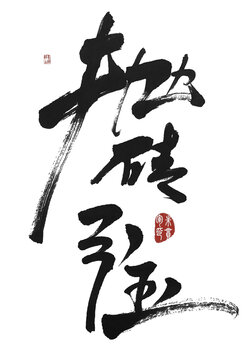 抛
砖
引玉